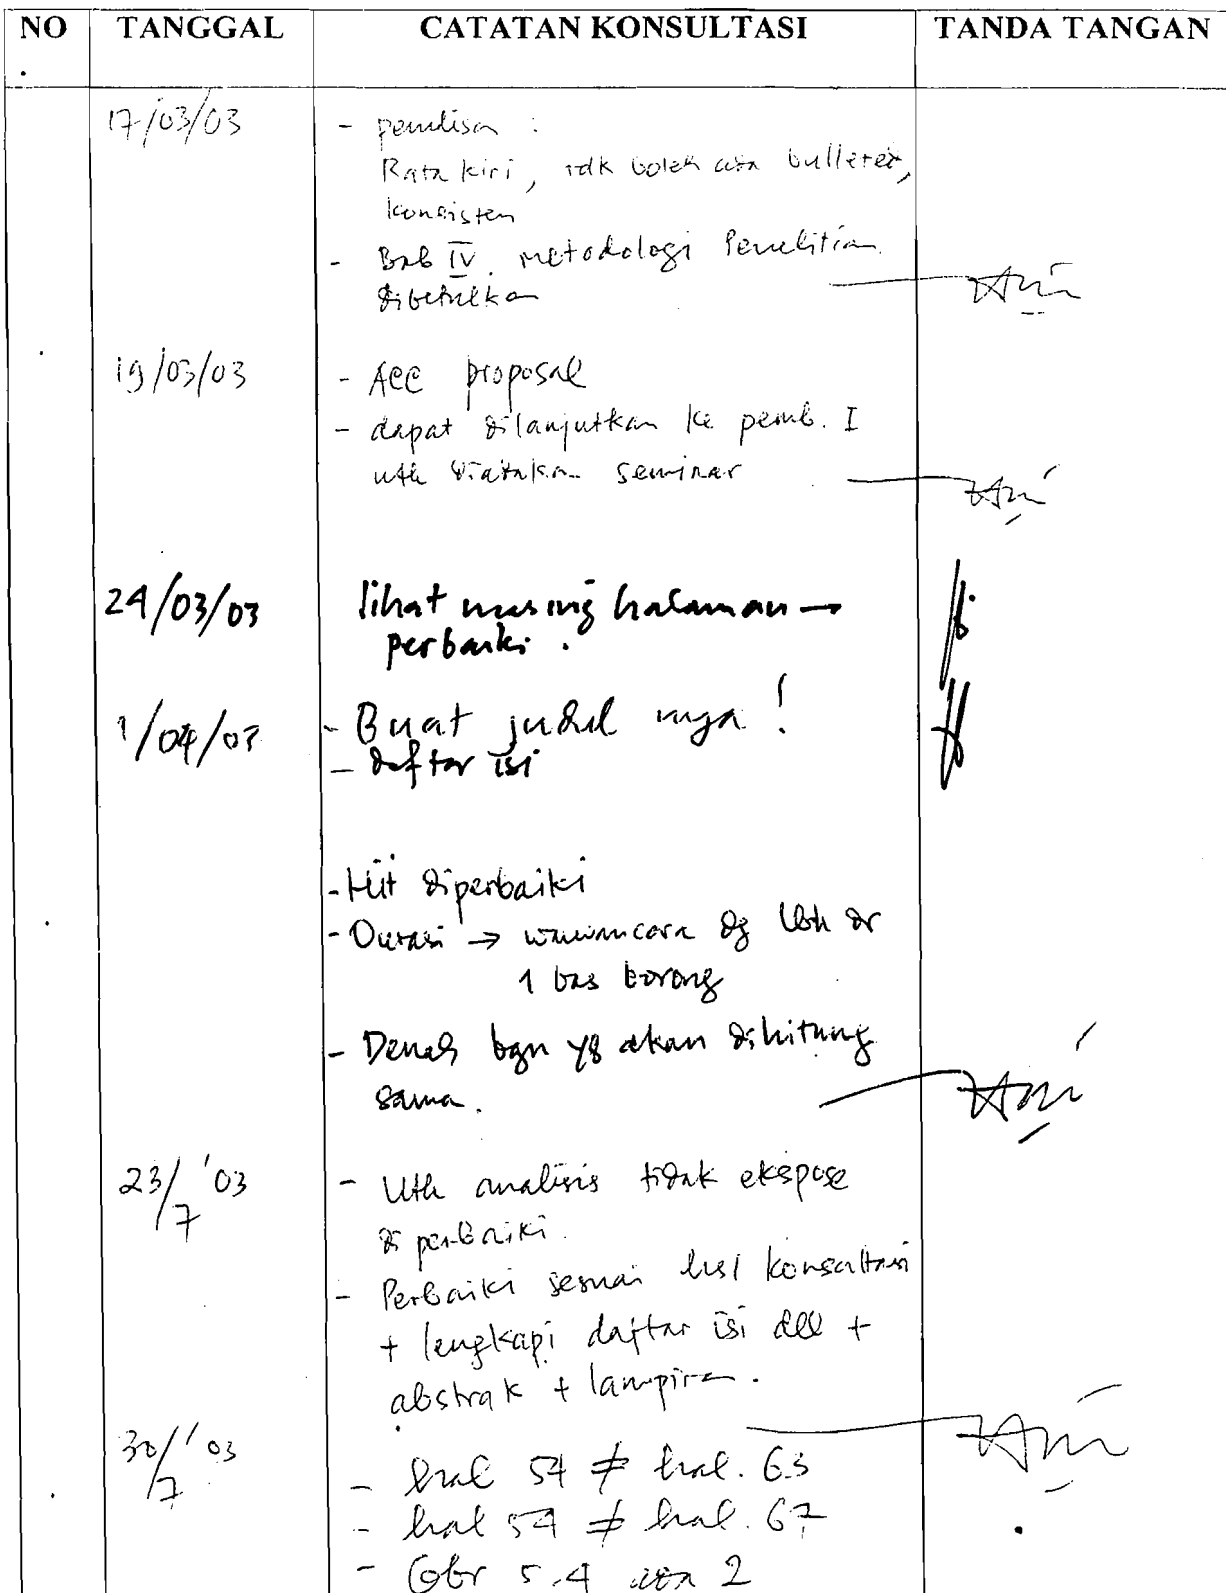 NO TANGGAL CATATAN KONSULTASI TANDA TANGAN
.
17/03/03 - penulisan :
Rata kiri, tdk boleh ada bulleted,
konsisten
- Bab IV. metodologi Penelitian
dibetulkan
19/03/03 - Acc proposal
- dapat dilanjutkan ke pemb. I
utk diadakan seminar
24/03/03 lihat masing halaman →
perbaiki .
1/04/03 - Buat judul nya !
- daftar isi
- Hit diperbaiki
- Durasi → wawancara dg lbh dr
1 bas borong
- Denah bgn yg akan dihitung
sama.
23/7 '03 - Utk analisis tidak ekspose
diperbaiki.
- Perbaiki sesuai hsl konsultasi
+ lengkapi daftar isi dll +
abstrak + lampiran.
30/7 '03 - hal 54 ≠ hal. 63
- hal 54 ≠ hal. 67
- Gbr 5.4 ada 2